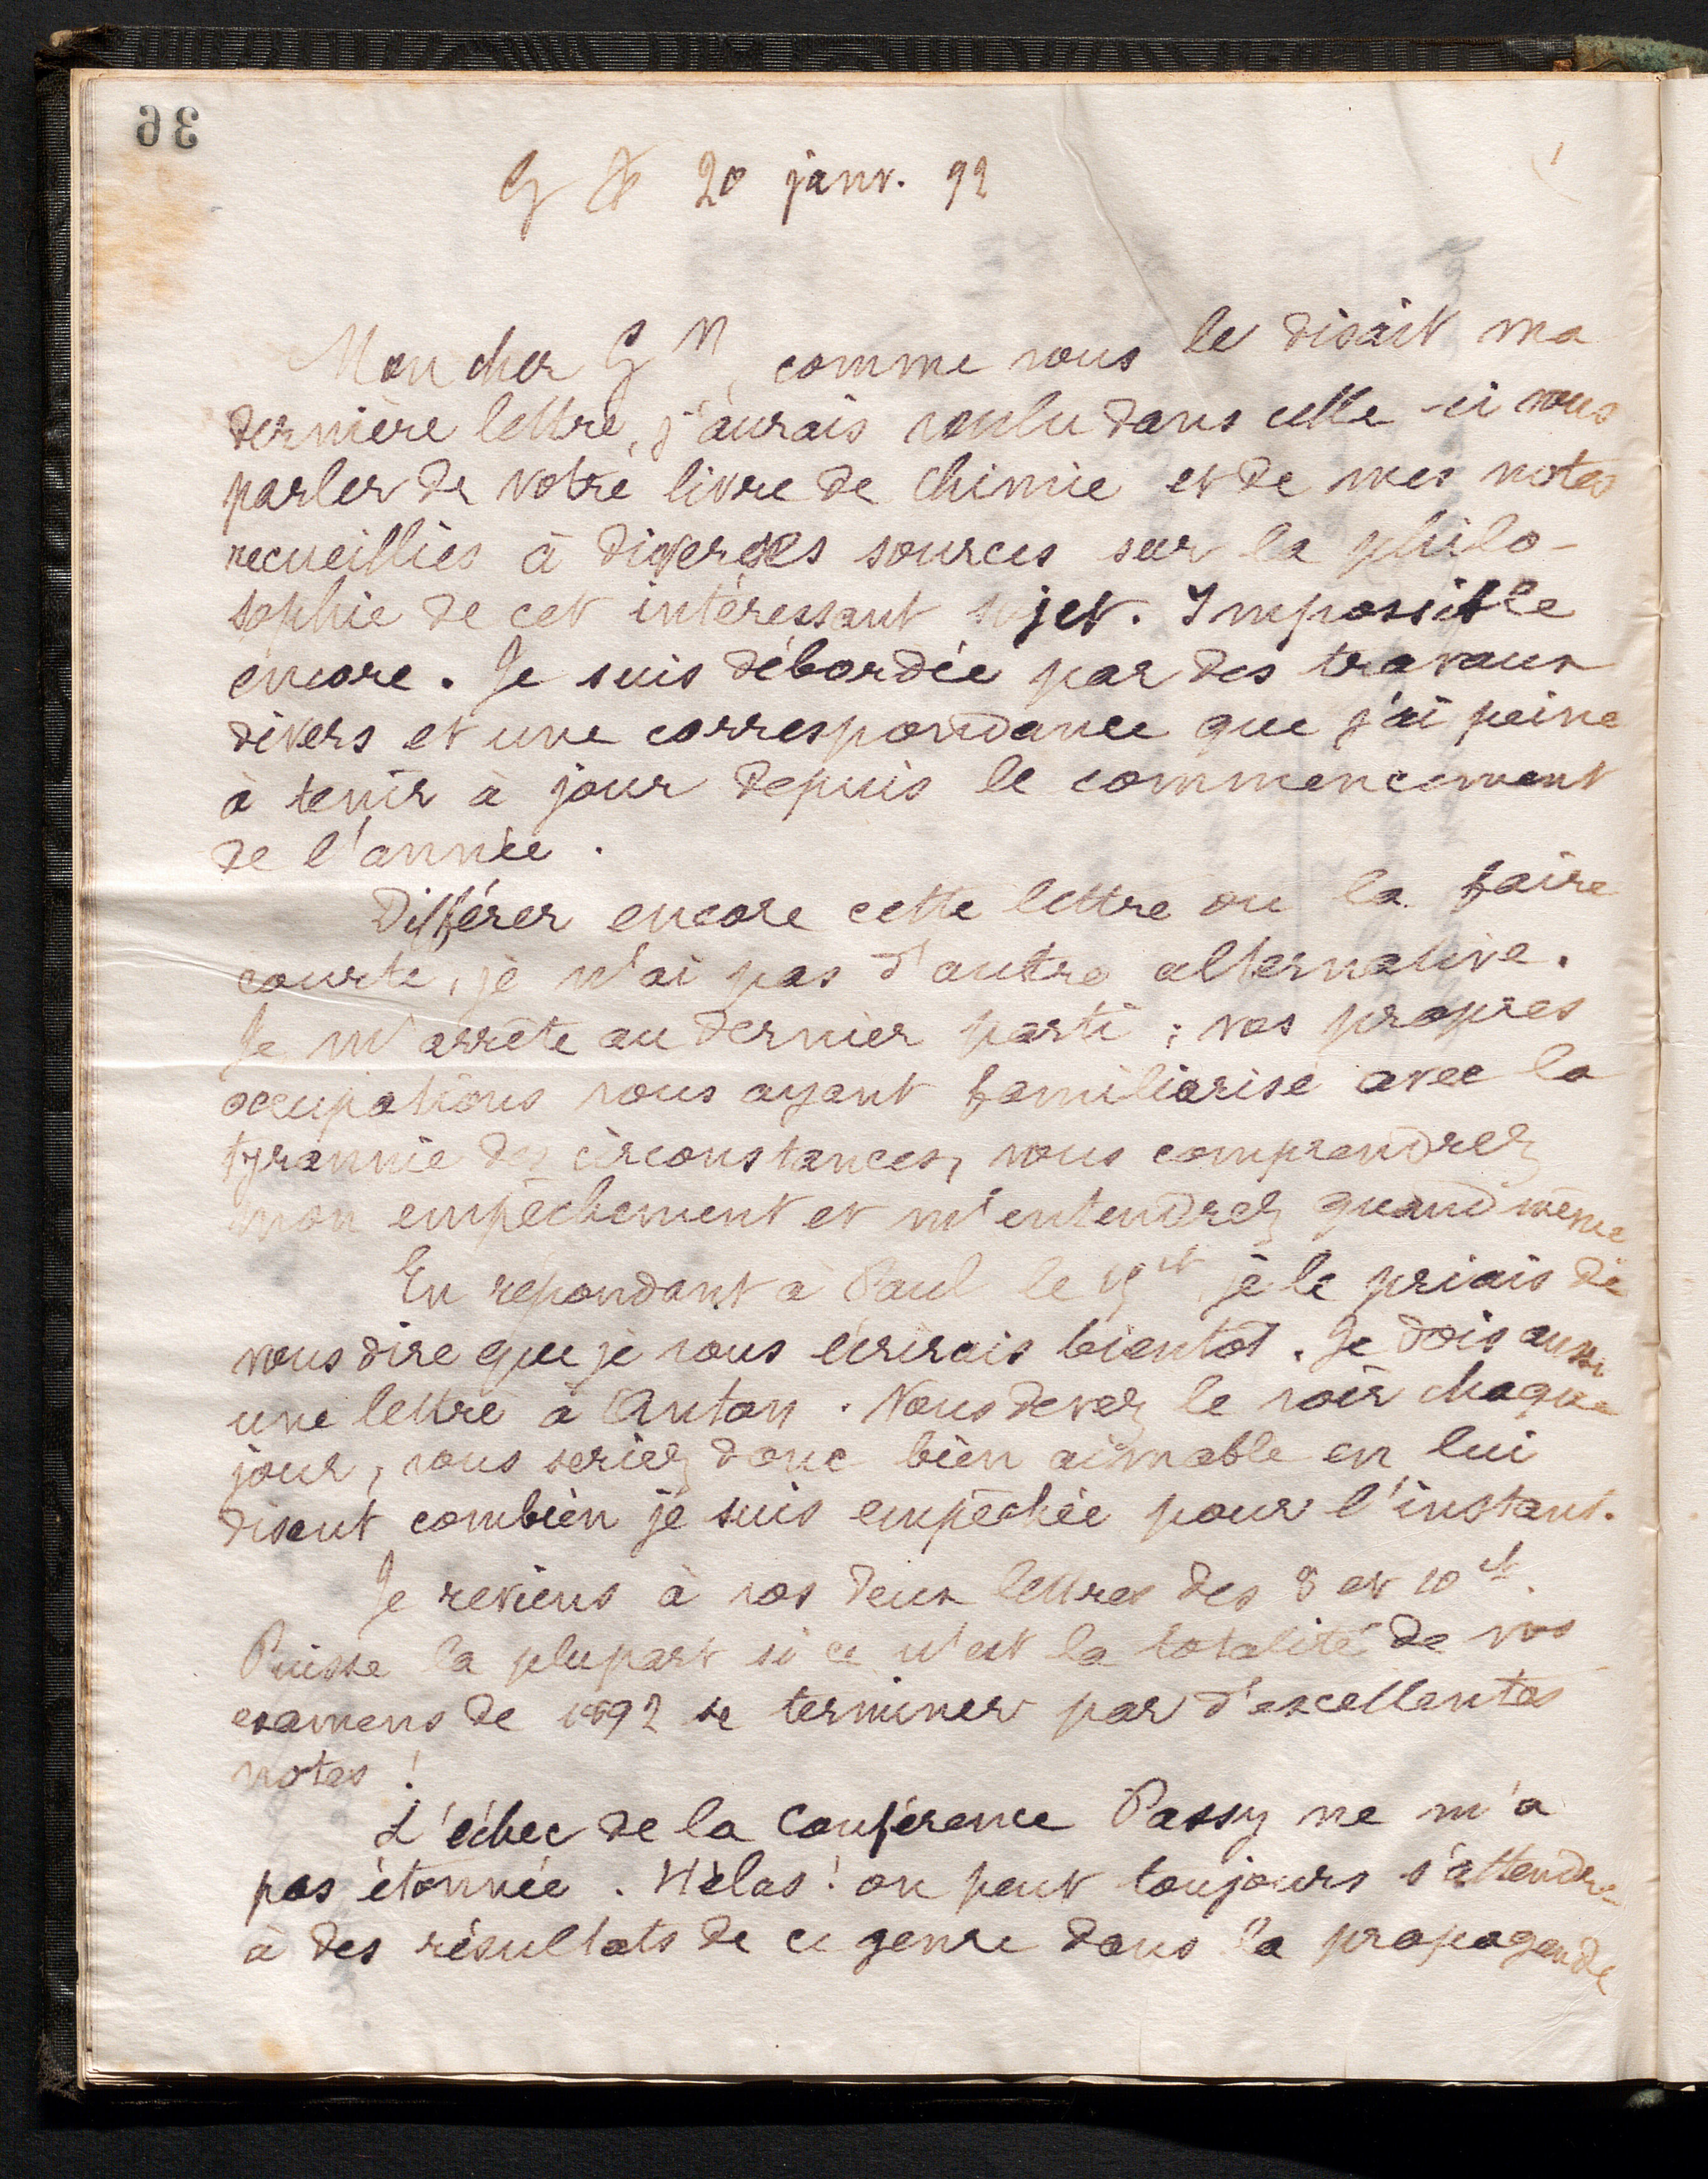 36
G 20 janv. 92
Mon cher G N, comme vous le disait ma
dernière lettre, j'aurais voulu dans celle-ci vous
parler de votre livre de chimie et de mes notes
recueillies à diverses sources sur la philo-
sophie de cet intéressant sujet. Impossible
encore. Je suis débordée par des travaux
divers et une correspondance que j'ai peine
à tenir à jour depuis le commencement
de l'année.
Différer encore cette lettre ou la faire
courte, je n'ai pas d'autre alternative.
Je m'arrête au dernier parti ; vos propres
occupations vous ayant familiarisé avec la
tyrannie des circonstances, vous comprendrez
mon empêchement et m'entendrez quand même.
En répondant à Paul le je le priais de
vous dire que je vous écrirais bientôt. Je dois aussi
une lettre à Anton. Vous devez le voir chaque
jour, vous seriez donc bien aimable en lui
disant combien je suis empêchée pour l'instant.
Je reviens à vos deux lettres des 8 et 10 ct.
Puisse la plupart si ce n'est la totalité de vos
examens de 1892 se terminer par d'excellentes
notes !
L'échec de la Conférence Passy ne m'a
pas étonnée. Hélas ! on peut toujours s'attendre
à des résultats de ce genre dans la propagande